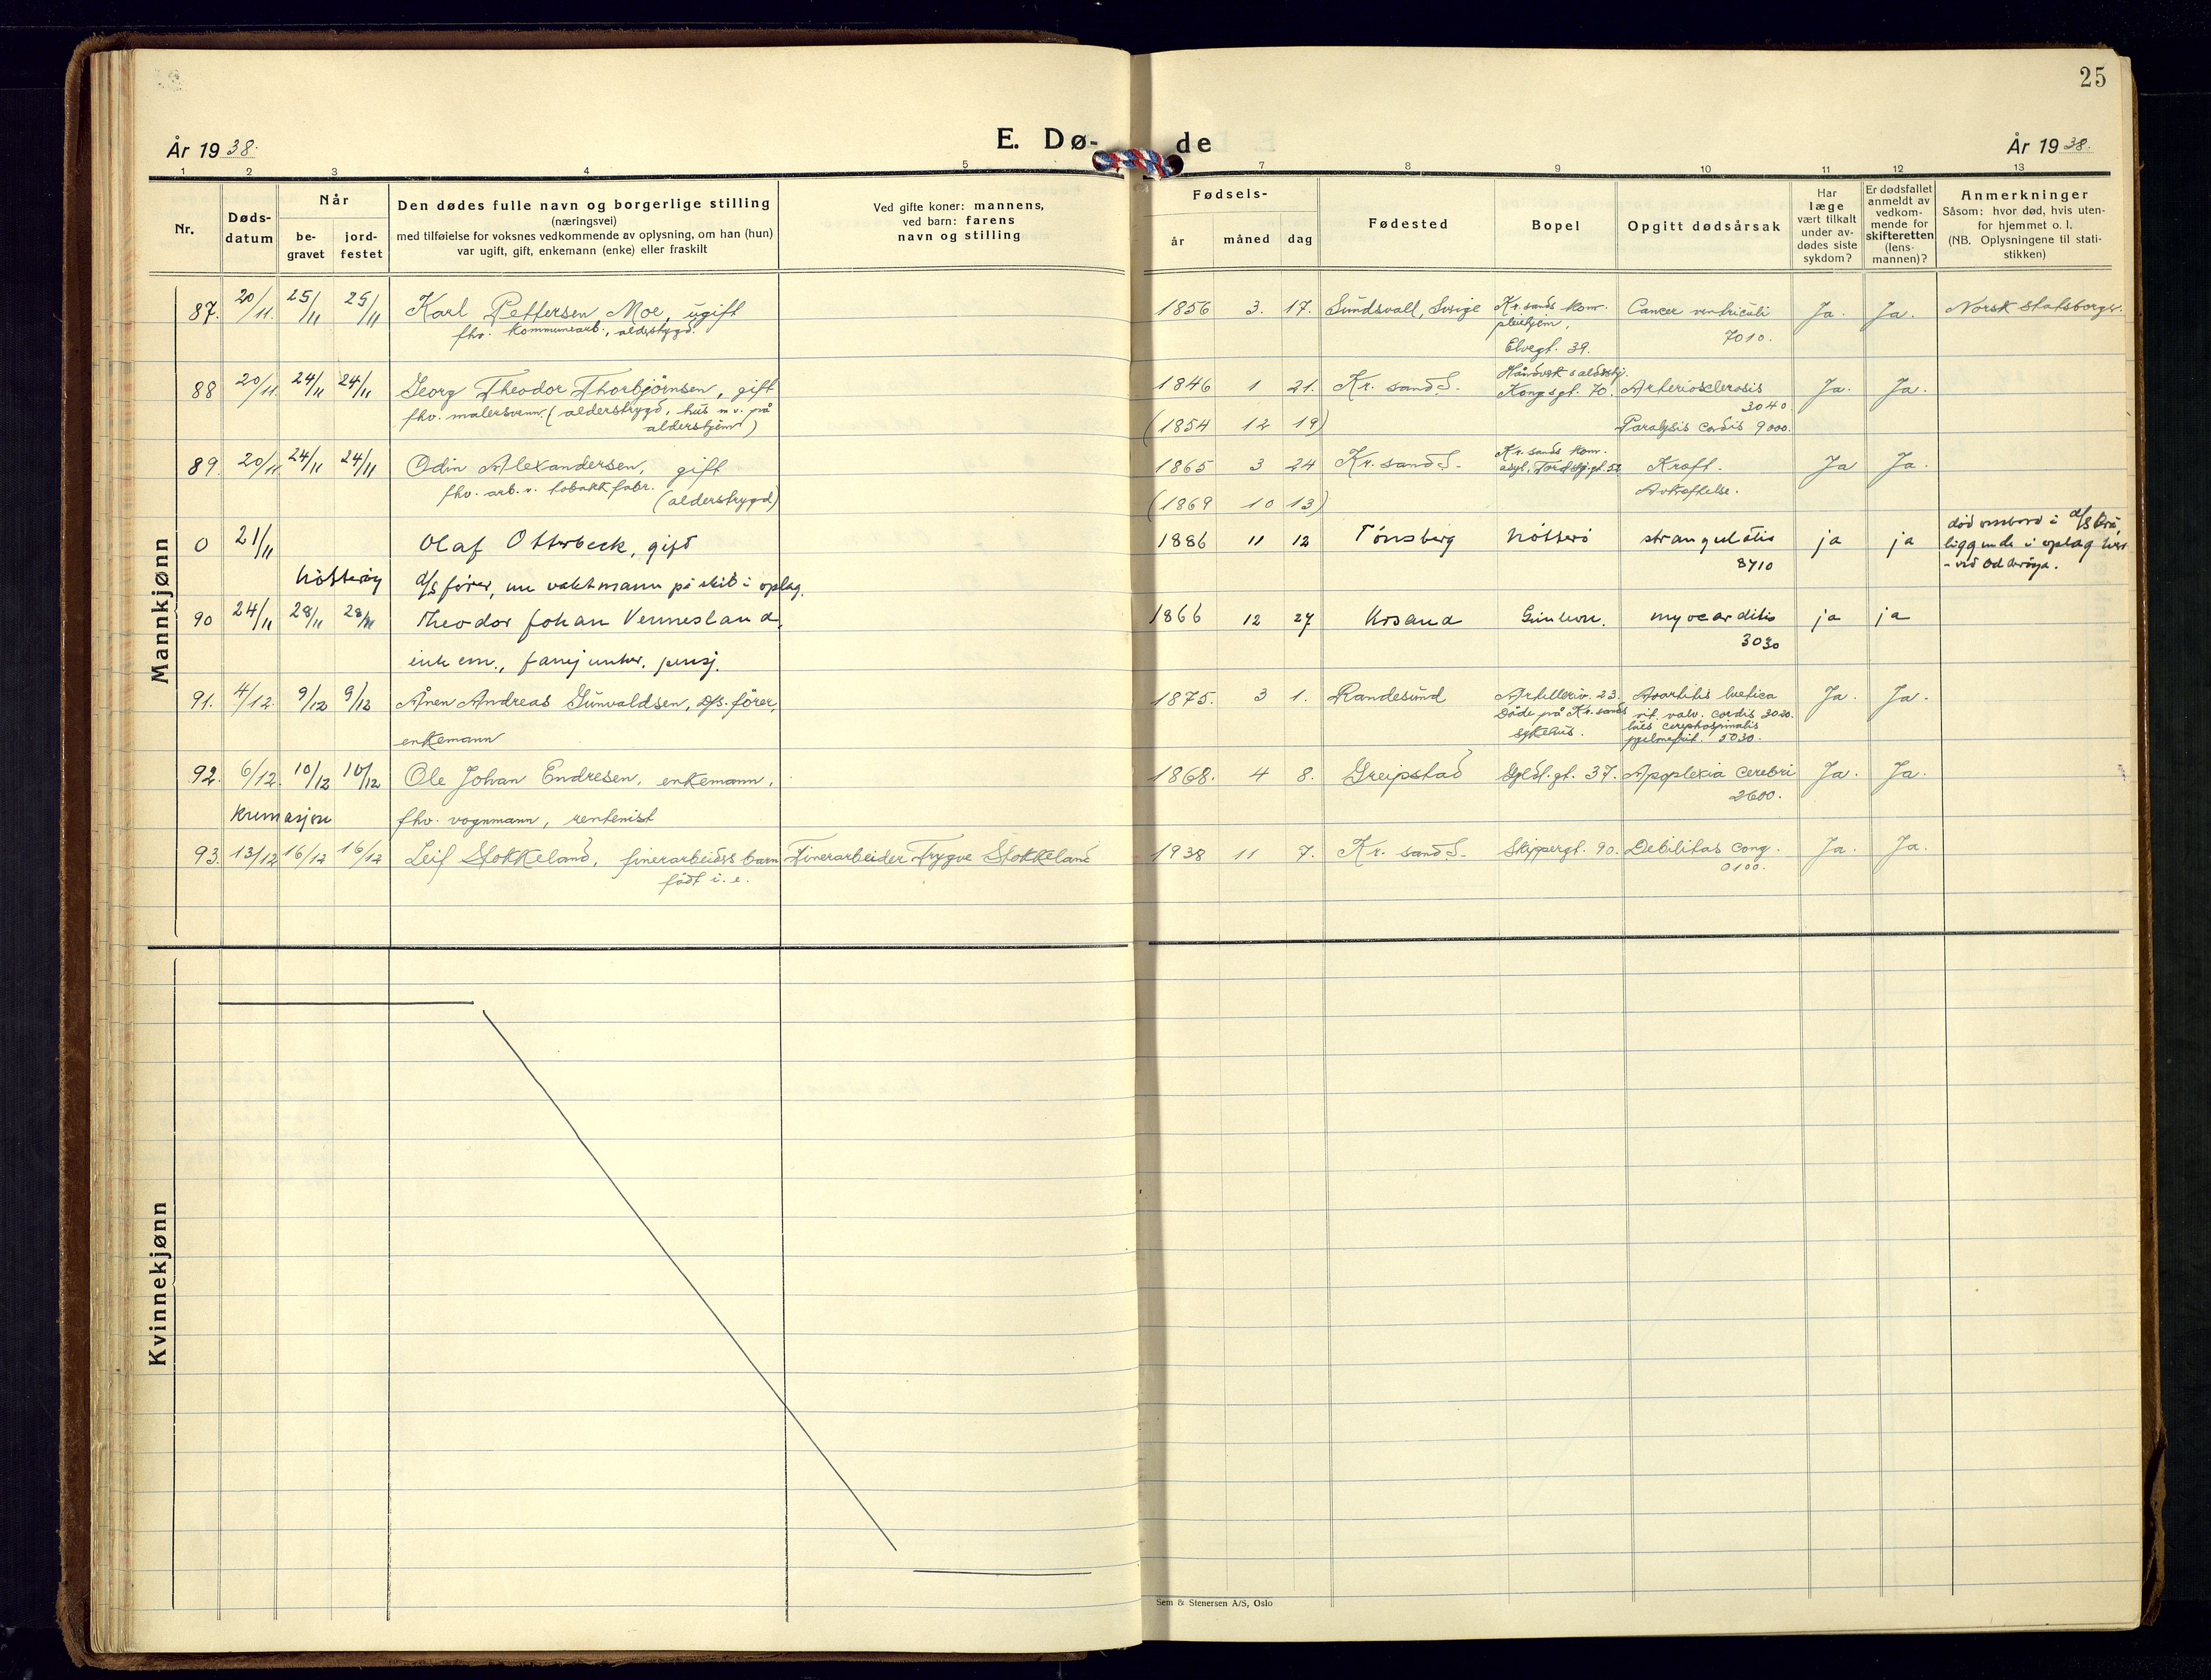 25
År 1938.
E. Dø-
de
År 1938.
1 2 3 4 5 7 8 9 10 11 12 13
Nr.
Døds-
datum
Når
be-
gravet
jord-
festet
Den dødes fulle navn og borgerlige stilling
(næringsvei)
med tilføielse for voksnes vedkommende av oplysning, om han (hun)
var ugift, gift, enkemann (enke) eller fraskilt
Ved gifte koner: mannens,
ved barn: farens
navn og stilling
Fødsels-
år måned dag
Fødested
Bopel
Opgitt dødsårsak
Har
læge
vært tilkalt
under av-
dødes siste
sykdom?
Er dødsfallet
anmeldt av
vedkom-
mende for
skifteretten
(lens-
mannen)?
Anmerkninger
Såsom: hvor død, hvis uten-
for hjemmet o. l.
(NB. Oplysningene til stati-
stikken)
Mannkjønn
87. 20/11. 25/11 25/11 Karl Pettersen Moe, ugift 1856 3. 17. Sundsvall, Sverige Kr.sands kom. Cancer ventriculi Ja. Ja. Norsk statsborger.
fhv. kommunearb., alderstrygd. pleiehjem, 7010.
Elvegt. 39.
Håndverk saldershj.
88 20/11. 24/11 24/11 Georg Theodor Thorbjørnsen, gift 1846 1 21. Kr. sand S. Kongsgt. 70. Arteriosclerosis Ja. Ja.
fhv. malersvenn (alderstrygd, hus m.v. på 3040.
aldershjem) (1854 12 19) Paralysis cordis 9000.
89. 20/11 24/11 24/11 Odin Alexandersen, gift 1865 3 24 Kr. sand S. Kr. sands kom. Kreft. Ja Ja.
asyl, Tordskj.gt. 52
fhv. arb. v. tobakkfabr. Avkreftelse.
(alderstrygd) (1869 10 13)
0 21/11 Olaf Otterbeck, gift 1886 11 12 Tønsberg Nøtterø strangulatio ja ja død ombord i d/s
8710 liggende i oplag her
- ved Odderøya.
Nøtterøy d/s fører, nu vaktmann på skib i oplag.
90 24/11 28/11 28/11 Theodor Johan Vennesland, 1866 12 27 Krsand Gimlevn. myocarditis ja ja
3030
enkem., fanejunker, pensj.
91. 4/12. 9/12 9/12 Ånen Andreas Gunvaldsen, d/s. fører, 1875. 3 1. Randesund Artilleriv. 23. Aortitis luetica Ja. Ja.
Døde på Kr. sands vit. valv. cordis 3020.
enkemann sykehus. lues cerebrospinalis
5030.
92. 6/12. 10/12 10/12 Ole Johan Endresen, enkemann, 1868. 4 8. Greipstad Gyld.gt. 37. Apoplexia cerebri Ja. Ja.
2600.
Kremasjon fhv. vognmann, rentenist
93. 13/12 16/12 16/12 Leif Stokkeland, finerarbeiders barn Finerarbeider Trygve Stokkeland 1938 11 7. Kr. sand S. Skippergt. 90. Debilitas cong. Ja. Ja.
født i. e. 0100.
Kvinnekjønn
Sem & Stenersen A/S, Oslo